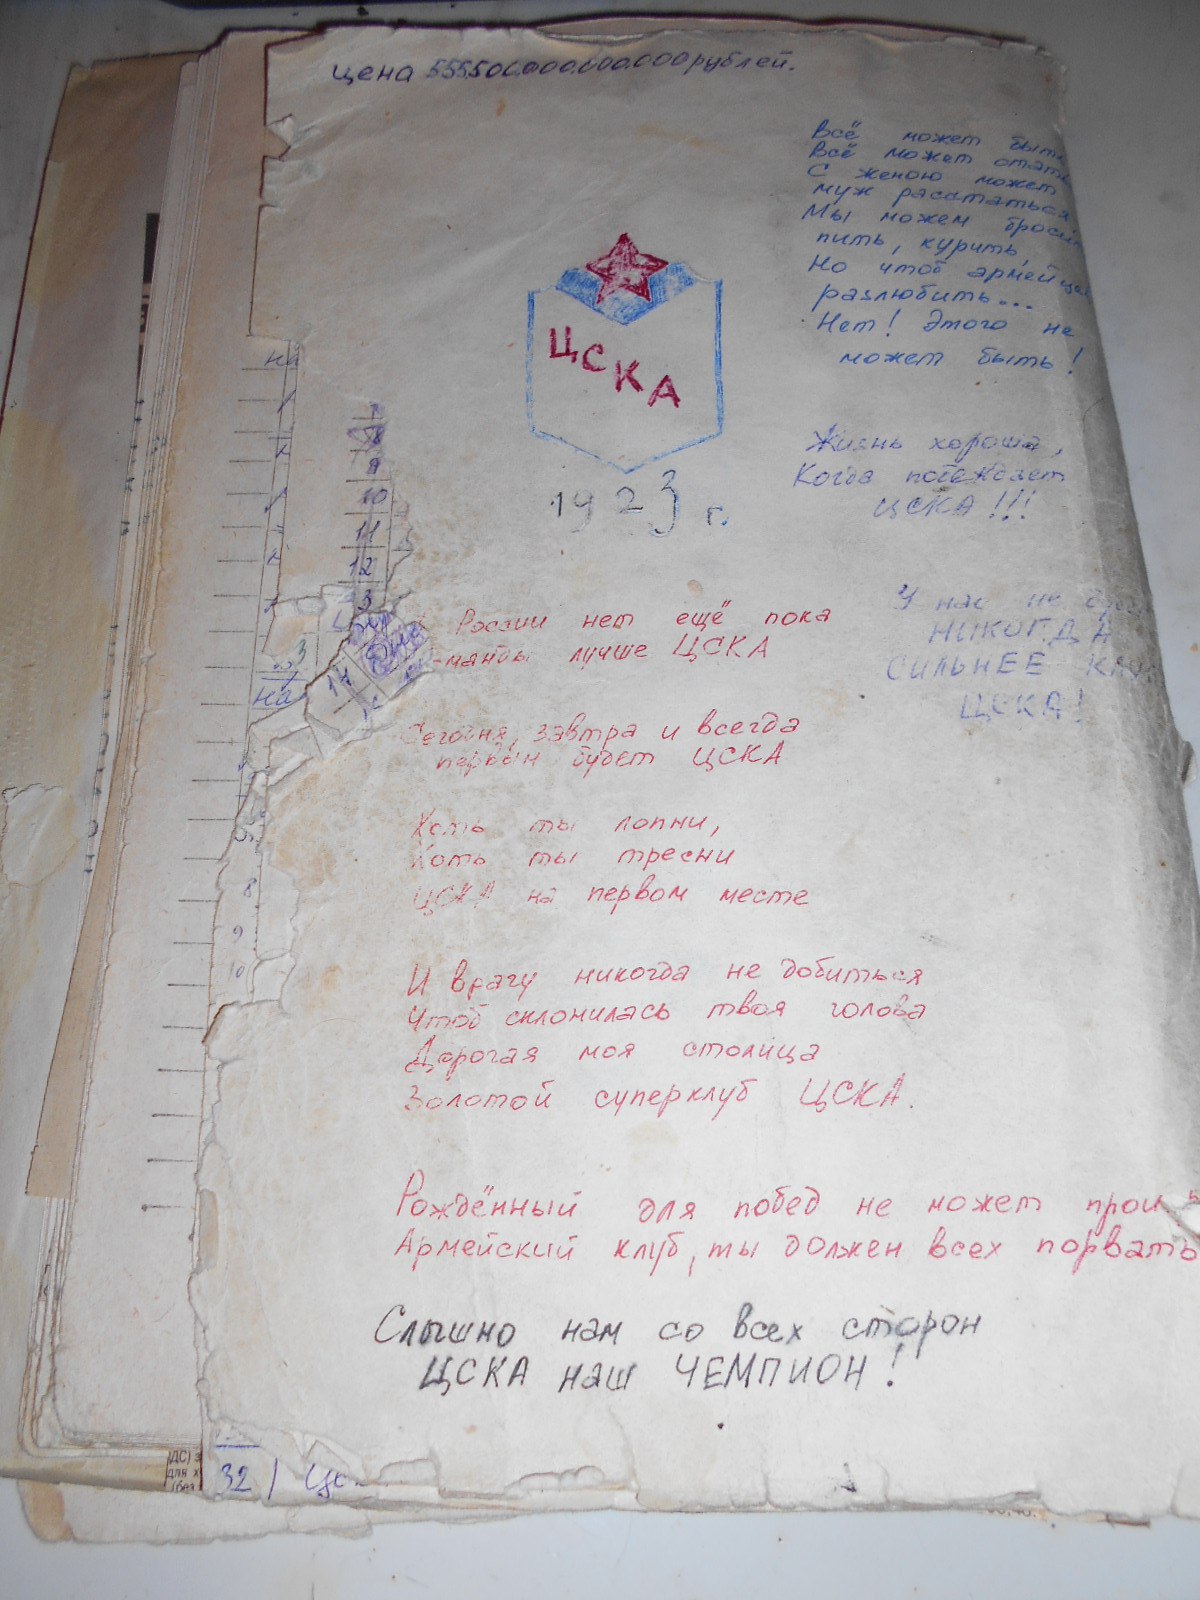 цена 555.500.000.000.000 рублей.
Всё может быть
Всё может стать
С женою может
муж расстаться
Мы можем бросить
пить, курить
Но чтоб армейцев
разлюбить...
Нет! Этого не
может быть!
ЦСКА
1923 г.
Жизнь хороша,
Когда побеждает
ЦСКА!!!
У нас не
НИКОГДА
СИЛЬНЕЕ
ЦСКА!
России нет ещё пока
-манды лучше ЦСКА
Сегодня, завтра и всегда
первым будет ЦСКА
Хоть ты лопни,
Хоть ты тресни
ЦСКА на первом месте
И врагу никогда не добиться
Чтоб склонилась твоя голова
Дорогая моя столица
Золотой суперклуб ЦСКА.
Рождённый для побед не может
Армейский клуб, ты должен всех порвать
Слышно нам со всех сторон
ЦСКА наш ЧЕМПИОН!
на
8
9
10
11
12
3
14
на
8
9
10
32
ДС)
для х
(без